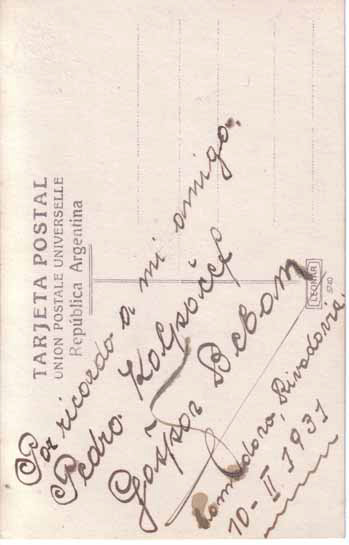 TARJETA POSTAL
UNION POSTALE UNIVERSELLE
República Argentina
LEONAR
Por ricordo a mi amigo.
Pedro Kolpočel
Gašpar Beban
Comodoro, Rivadavia.
10-II 1931